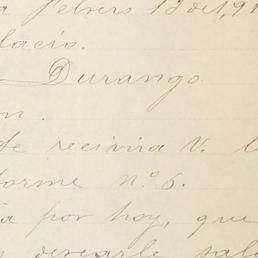 a febrero 13 de 191
lacio.
Durango.
n.
te recivira V. l
forme n.º 6.
ia por hoy, que
s desearle salu